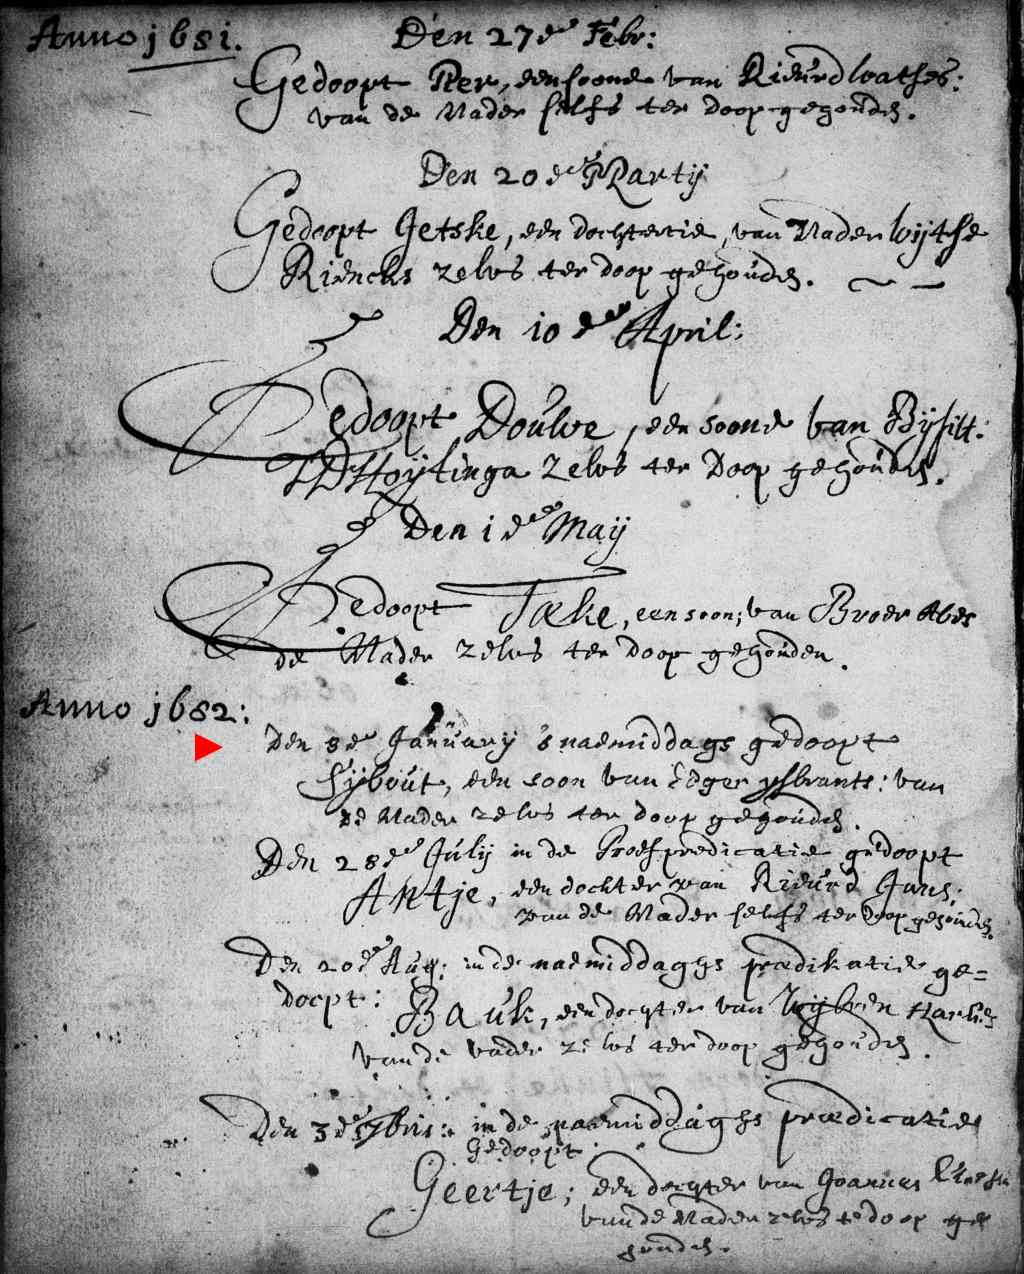 Anno 1681. Den 27de Febr:
Gedoopt Pier, een soone van Rieürd watses:
van de Vader selfs ter doop gegoüdē.
Den 20de Marty
Gedoopt Jetske, een dochtertie, van Vader wytse
Riencks zelvs ter doop gehoüdē.
Den 10den April:
Gedoopt Doüwe, een soone van Bysitt:
Hoytinga zelvs ter Doop gehoüdē.
Den 1de May
Gedoopt Tæke, een soon; van Broer Abes
de Vader zelvs ter doop gehoüden.
Anno 1682:
Den 8de Janüary 's naemiddags gedoopt
Sijboüt, een soon van Edger ysbrants: van
de Vader zelvs ter doop gehoüdē.
Den 28de Jüly in de Proefpredicatie gedoopt
Antje, een dochter van Rieürd Jans;
van de Vader selfs ter doop gehoüdē.
Den 20de Aug: in de naemiddaghs prædikatie ge=
doopt: Baük, een dochter van Wybren Harkes
van de vader zelvs ter doop gehoüdē.
Den 3de 7bris: in de naemiddaghs prædicatie
Gedoopt:
Geertje; een dochter van Joannes
van de Vader zelvs te doop ge
houdē.